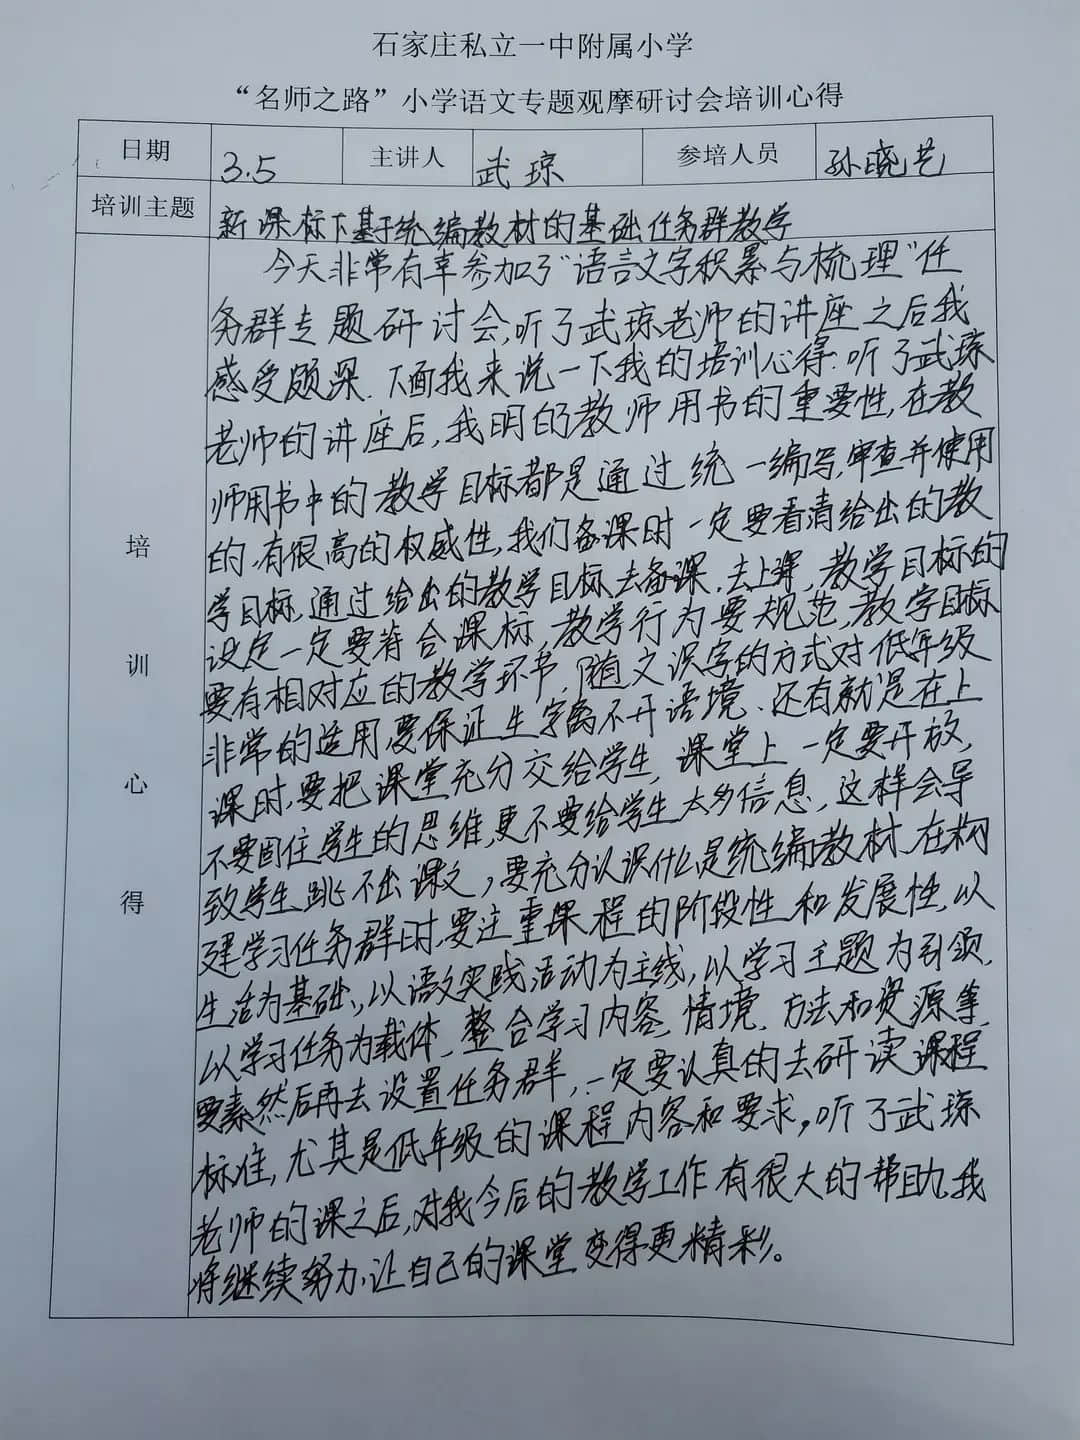 石家庄私立一中附属小学
“名师之路”小学语文专题观摩研讨会培训心得
日期 3.5 主讲人 武琼 参培人员 孙晓艺
培训主题 新课标下基于统编教材的基础任务群教学
培训心得
今天非常有幸参加了“语言文字积累与梳理”任
务群专题研讨会,听了武琼老师的讲座之后我
感受颇深.下面我来说一下我的培训心得.听了武琼
老师的讲座后,我明的教师用书的重要性,在教
师用书中的教学目标都是通过统一编写,审查并使用
的,有很高的权威性,我们备课时一定要看清给出的教
学目标,通过给出的教学目标去备课,去上课,教学目标的
设定一定要符合课标,教学行为要规范,教学目标
要有相对应的教学环节,随文识字的方式对低年级
非常的适用,要保证生字离不开语境.还有就是在上
课时,要把课堂充分交给学生,课堂上一定要开放,
不要固住学生的思维,更不要给学生太多信息,这样会导
致学生跳不出课文,要充分认识什么是统编教材.在构
建学习任务群时,要注重课程的阶段性和发展性,以
生活为基础,以语文实践活动为主线,以学习主题为引领,
以学习任务为载体,整合学习内容,情境,方法和资源等
要素,然后再去设置任务群,一定要认真的去研读课程
标准,尤其是低年级的课程内容和要求。听了武琼
老师的课之后,对我今后的教学工作有很大的帮助,我
将继续努力,让自己的课堂变得更精彩。